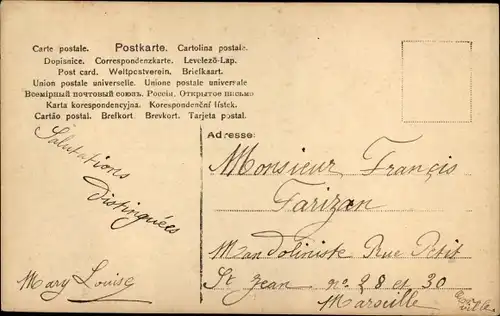 Carte postale. Postkarte. Cartolina postale.
Dopisnice. Correspondenzkarte. Levelező-Lap.
Post card. Weltpostverein. Briefkaart.
Union postale universelle. Unione postale universale
Всемірный почтовый союзъ. Россія. Открытое письмо
Karta korespondencyjna. Korespondenční lístek.
Cartão postal. Brefkort. Brevkort. Tarjeta postal.
Adresse:
Salutations
Distinguées
Mary Louise
Monsieur François
Farizan
Mandoliniste Rue Petit
St Jean nos 28 et 30
Marseille